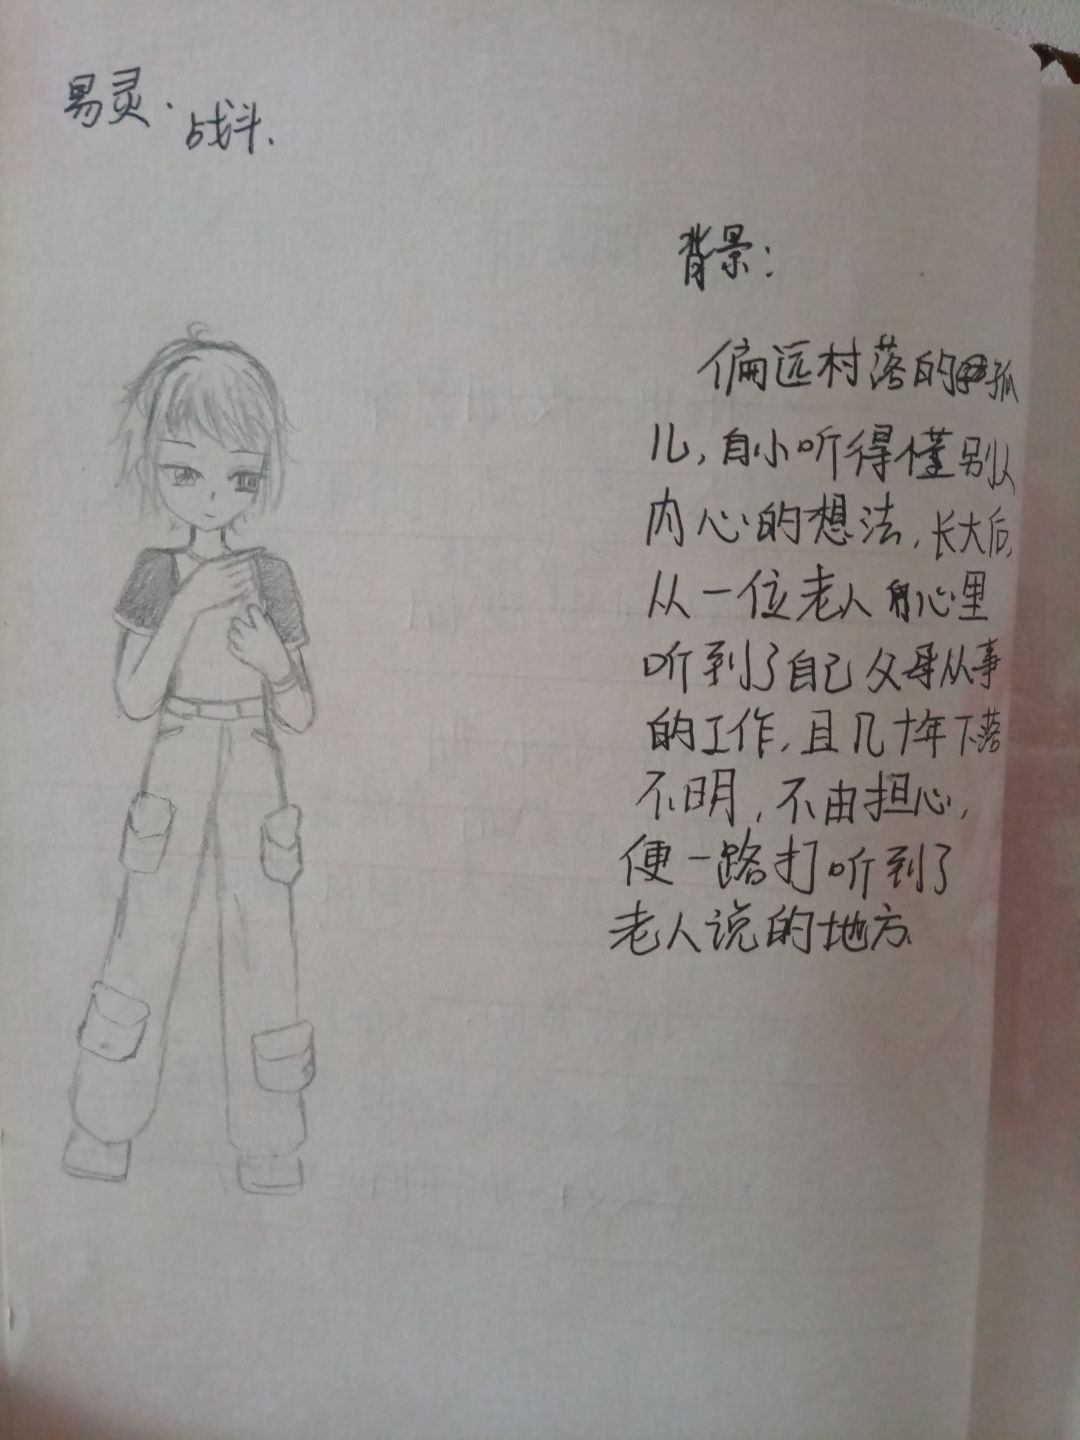 易灵·
战斗.
背景:
偏远村落的孤
儿,自小听得懂别人
内心的想法,长大后,
从一位老人的心里
听到了自己父母从事
的工作,且几十年下落
不明,不由担心,
便一路打听到了
老人说的地方.